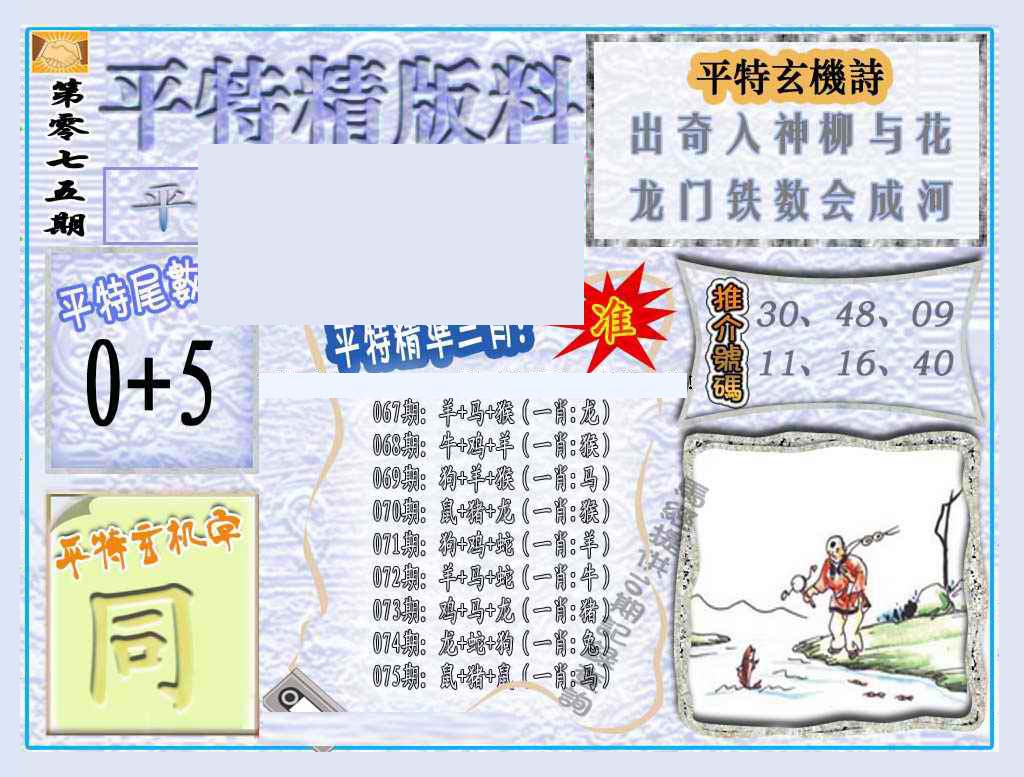 第零七五期
平特精版料
平特玄機詩
出奇入神柳与花
龙门铁数会成河
平
平特尾數
0+5
平特精準二肖!
准
推介號碼
30、48、09
11、16、40
067期: 羊+马+猴(一肖:龙)
068期: 牛+鸡+羊(一肖:猴)
069期: 狗+羊+猴(一肖:马)
070期: 鼠+猪+龙(一肖:猴)
071期: 狗+鸡+蛇(一肖:羊)
072期: 羊+马+蛇(一肖:牛)
073期: 鸡+马+龙(一肖:猪)
074期: 龙+蛇+狗(一肖:兔)
075期: 鼠+猪+鼠(一肖:马)
平特玄机字
同